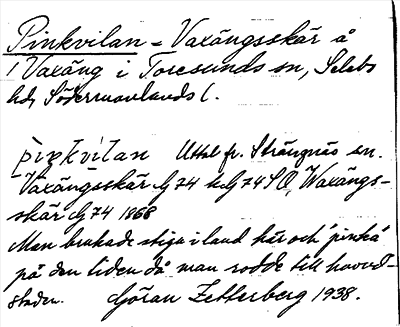 Pinkvilan = Vaxängsskär å
/ Vaxäng i Toresunds sn, Selebo
hd, Södermanlands l.
pipkvilan Uttal fr. Strängnäs sn.
Vaxängsskär G 74 k G 74 SO, Waxängs-
skär G 74 1868
Man brukade stiga i land här och 'pinka'
på den tiden då man rodde till huvud-
staden. Göran Zetterberg 1938.